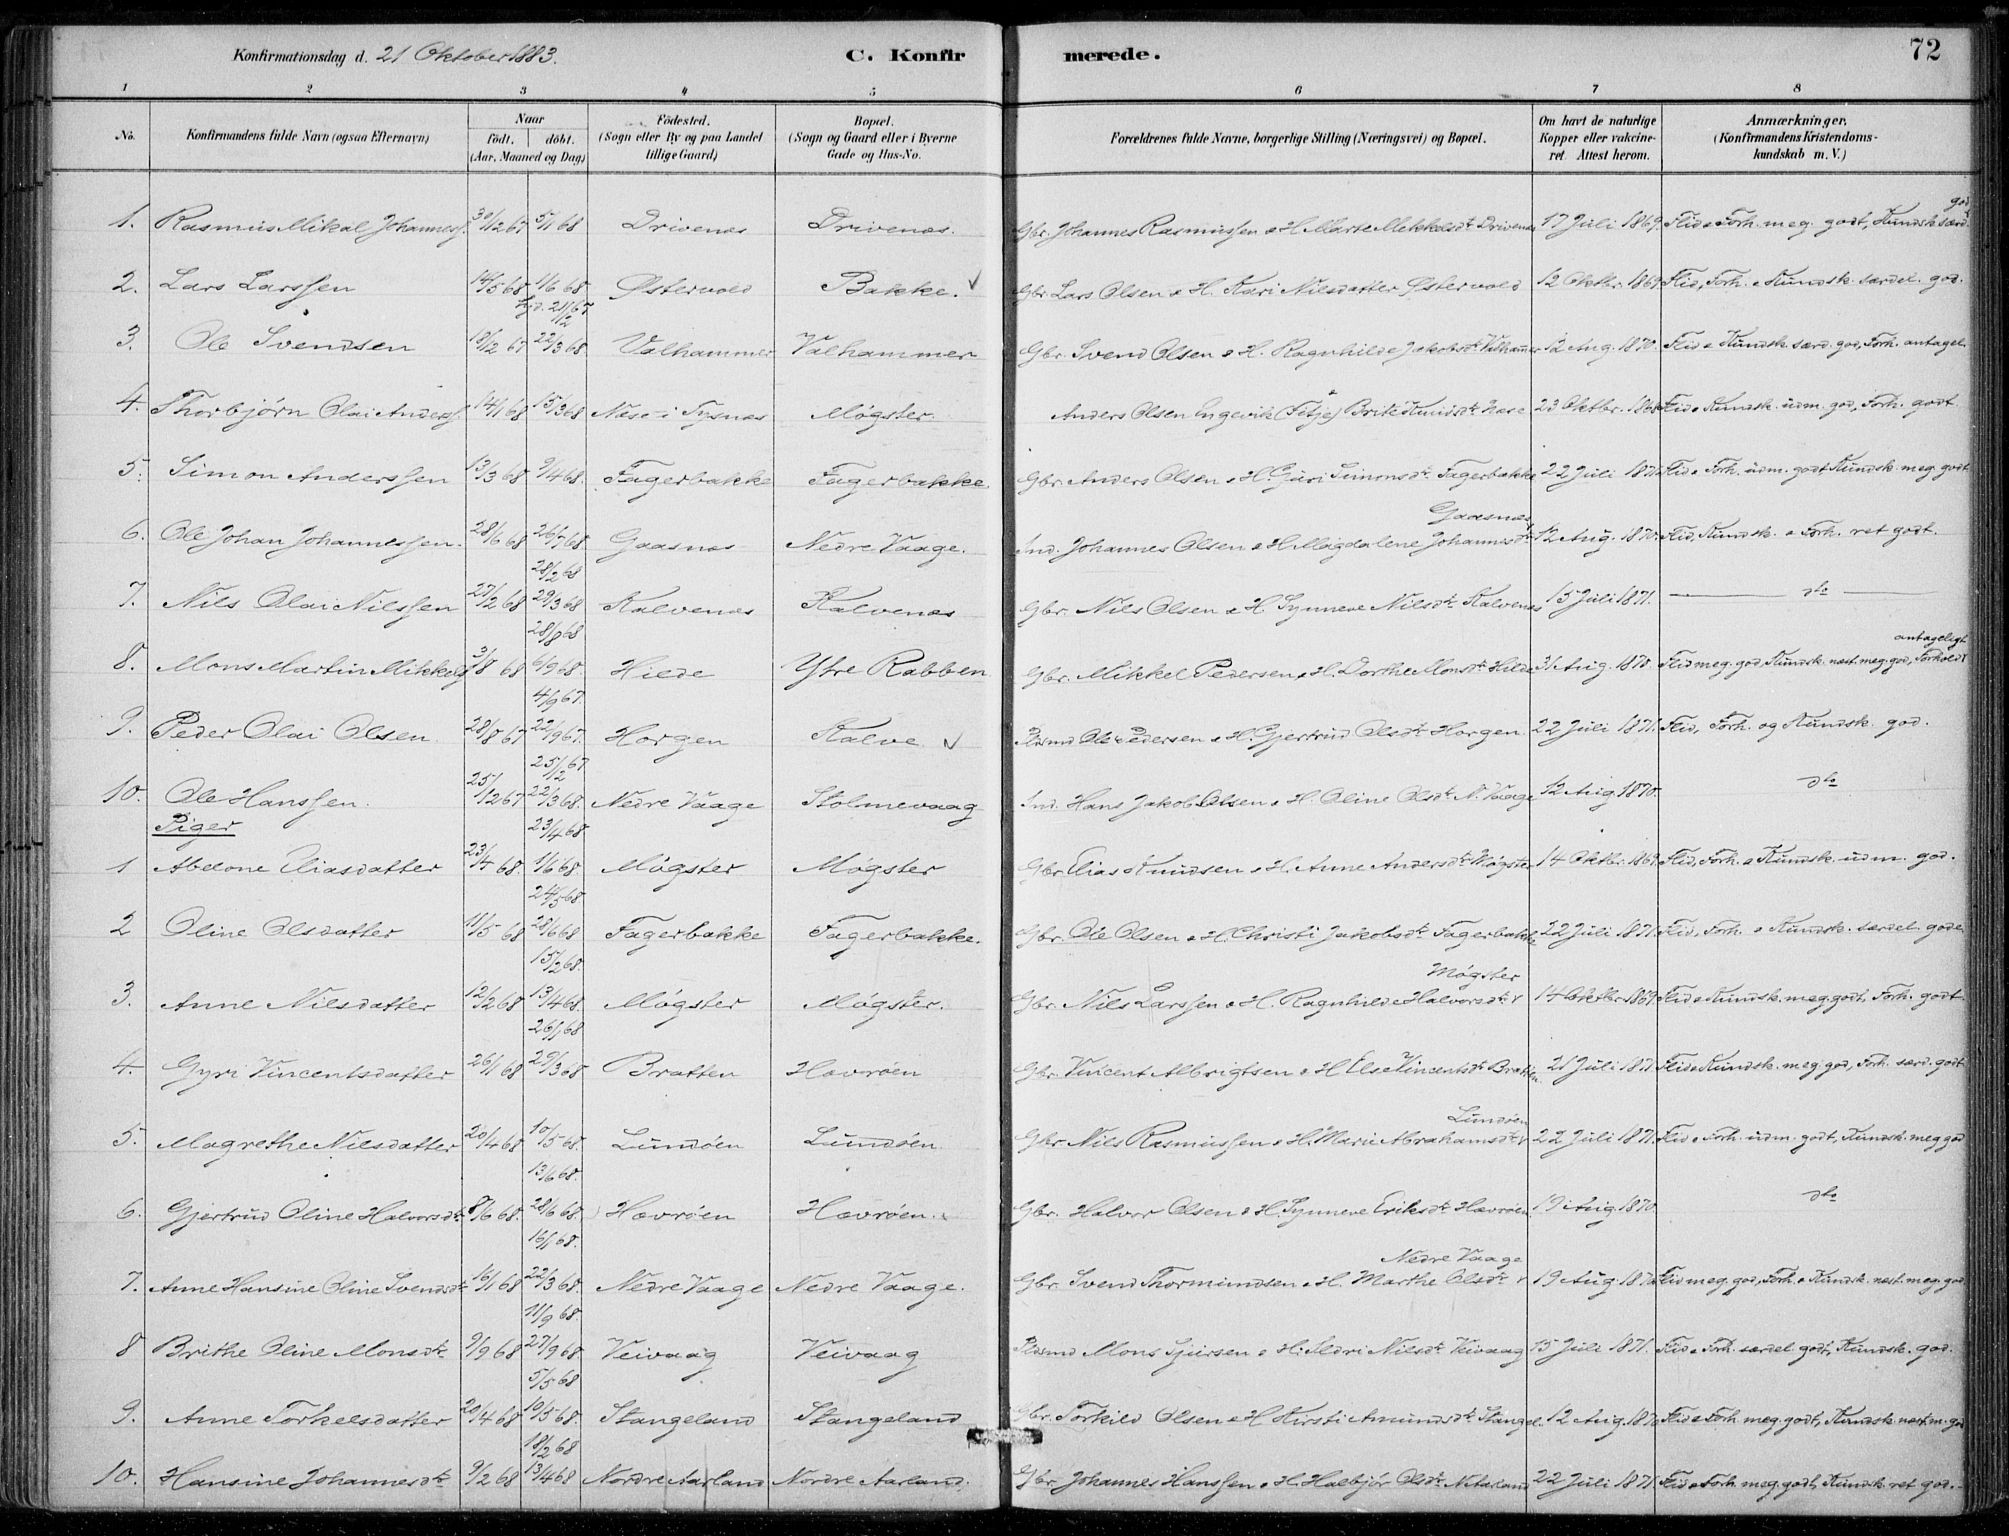 Konfirmationsdag d. 21 Oktober 1883.
C. Konfirmerede.
72
1 2 3 4 5 6 7 8
No.
Konfirmandens fulde Navn (ogsaa Efternavn)
Naar
födt. döbt.
(Aar, Maaned og Dag)
Födested.
(Sogn eller By og paa Landet
tillige Gaard)
Bopæl.
(Sogn og Gaard eller i Byerne
Gade og Hus-No.
Forældrenes fulde Navne, borgerlige Stilling (Næringsvei) og Bopæl.
Om havt de naturlige
Kopper eller vakcine-
ret. Attest herom.
Anmærkninger.
(Konfirmandens Kristendoms-
kundskab m. V.)
1. Rasmus Mikal Johanness. 30/12 67 5/1 68 Drivenes Drivenes. Gbr. Johannes Rasmussen & H. Marte Mikkelsdtr Drivenes 17 Juli 1869. Flid & Forh. meg. godt, Kundsk. særd. god
2. Lars Larssen 14/5 68 1/6 68 Østervold Bakke. Gbr. Lars Olsen & H. Kari Nilsdatter Østervold 12 Oktbr. 1869 Flid, Forh. & Kundsk. særdel. god.
3. Ole Svendsen 18/12 67 22/3 68 Valhammer Valhammer Gbr. Svend Olsen & H. Ragnhilde Jakobsdtr Valhamer 12 Aug. 1870. Flid & Kundsk. særd. god, Forh. antagel.
4. Thorbjørn Olai Anderss. 14/1 68 15/3 68 Næse i Tysnæs Møgster. Anders Olsen Engevik (Fitje) & Brite Knudsdtr Næse 23 Oktbr. 1868 Flid & Kundsk. udm. god, Forh. godt
5. Simon Anderssen 13/3 68 9/4 68. Fagerbakke Fagerbakke Gbr. Anders Olsen & H. Guri Simonsdtr Fagerbakke 22 Juli 1871 Flid & Forh. udm. godt, Kundsk. meg. godt
6. Ole Johan Johannessen. 28/6 68 26/7 68 Gaasnes Nedre Vaage. Ind. Johannes Olsen & H. Magdalene Johannesdtr Gaasnes 12 Aug. 1870. Flid, Kundsk. & Forh. ret godt.
28/2 68
7. Nils Olai Nilssen 27/2 68 29/3 68 Kalvenes Kalvenes Gbr. Nils Olsen & H. Synneve Nilsdtr Kalvenes 15 Juli 1871. dto
28/8 68
8. Mons Martin Mikkels. 3/8 68 6/9 68. Hilde Ytre Rabben Gbr. Mikkel Pedersen & H. Dorthe Monsdtr Hilde 31 Aug. 1870. Flid meg. god, Kundsk. næst. meg. god, Forhold antageligt
4/9 67.
9. Peder Olai Olsen 28/8 67 22/9 67. Horgen Kalve Plsmd Ole Pedersen & H. Gjertrud Olsdtr Horgen. 22 Juli 1871. Flid, Forh. og Kundsk. god.
25/12 67
10. Ole Hanssen. 25/12 67 22/3 68. Nedre Vaage Stolmevaag Ind. Hans Jakob Olsen & H. Oline Olsdtr N. Vaage 12 Aug. 1870. dto
Piger
23/4 68.
1 Abelone Eliasdatter 23/4 68. 1/6 68. Møgster Møgster Gbr. Elias Knudsen & H. Anne Andersdtr Møgster 14 Oktbr. 1869. Flid, Forh. & Kundsk. udm. god.
24/5 68.
2 Oline Olsdatter 11/5 68 28/6 68 Fagerbakke Fagerbakke. Gbr. Ole Olsen & H. Christi Jakobsdtr Fagerbakke 22 Juli 1871. Flid, Forh. & Kundsk. særdel. gode.
15/2 68.
3. Anne Nilsdatter 12/2 68 13/4 68. Møgster Møgster. Gbr. Nils Larssen & H. Ragnhilde Halvorsdtr Møgster 14 Oktbr. 1869. Flid & Kundsk. meg. godt, Forh. godt
26/1 68
4. Gyri Vincentsdatter 26/1 68 29/3 68 Bratten Havrøen Gbr. Vincent Albrigtsen & H. Else Vincentsdtr Bratten 21 Juli 1871. Flid & Kundsk. meg. god, Forh. særd. godt
5. Magrethe Nilsdatter 20/4 68 10/5 68. Lundøen Lundøen. Gbr. Nils Rasmussen & H. Marie Abrahamsdtr Lundøen 22 Juli 1871. Flid & Forh. udm. godt, Kundsk. meg god
13/6 68.
6. Gjertrud Oline Halvorsdtr 8/6 68. 28/6 68. Hævrøen Hævrøen. Gbr. Halvor Olsen & H. Synneve Eriksdtr Hævrøen 19 Aug. 1870. dto
16/1 68.
7. Anne Hansine Oline Svendsdtr 16/1 68 22/3 68. Nedre Vaage Nedre Vaage. Gbr. Svend Thormundsen & H. Marthe Olsdtr Nedre Vaage 19 Aug. 1870 Flid meg. god, Forh. & Kundsk. næst. meg. god.
11/9 68.
8 Brithe Oline Monsdtr 9/9 68 27/9 68. Veivaag Veivaag Plsmd Mons Sjursen & H. Sldri Nilsdtr Veivaag 15 Juli 1871. Flid & Forh. særdel. godt, Kundsk. god.
5/5 68
9. Anne Torkelsdatter 20/4 68 10/5 68. Stangeland Stangeland Gbr. Torkild Olsen & H. Kirsti Amundsdtr Stangel. 12 Aug. 1870 Flid & Forh. meg. godt, Kundsk. næst. m. god
18/2 68
10. Hansine Johannesdtr 9/2 68 13/4 68 Nordre Aarland Nordre Aarland. Gbr. Johannes Hanssen & H. Halbjør Olsdtr N. Aarland 22 Juli 1871. Flid & Forh. meg. godt, Kundsk. ret god.